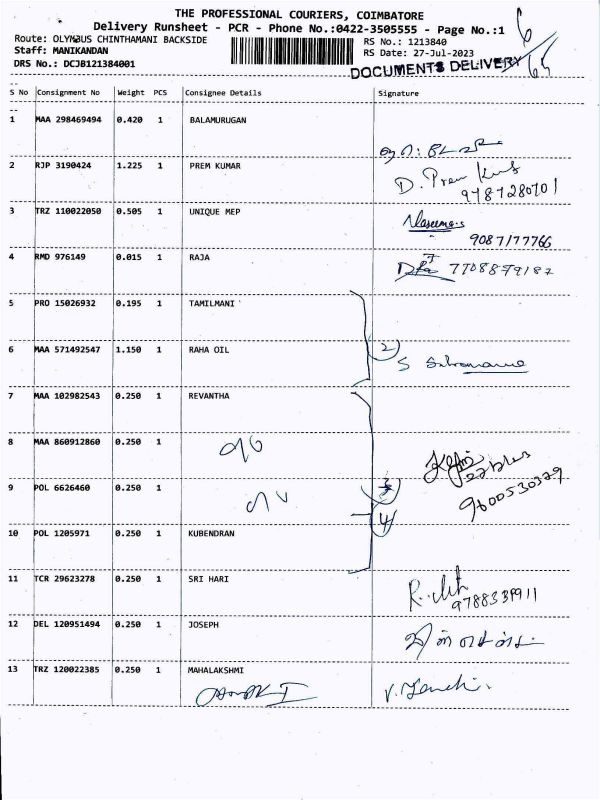 THE PROFESSIONAL COURIERS, COIMBATORE
Delivery Runsheet - PCR - Phone No.:0422-3505555 - Page No.:1
Route: OLYMBUS CHINTHAMANI BACKSIDE RS No.: 1213840
Staff: MANIKANDAN RS Date: 27-Jul-2023
DRS No.: DCJB121384001 DOCUMENTS DELIVERY
S No Consignment No Weight PCS Consignee Details Signature
1 MAA 298469494 0.420 1 BALAMURUGAN
2 RJP 3190424 1.225 1 PREM KUMAR D. Prem Kumar
9787280701
3 TRZ 110022050 0.505 1 UNIQUE MEP
9087177766
4 RMD 976149 0.015 1 RAJA 7708879187
5 PRO 15026932 0.195 1 TAMILMANI
6 MAA 571492547 1.150 1 RAHA OIL 2
7 MAA 102982543 0.250 1 REVANTHA
8 MAA 860912860 0.250 1
9 POL 6626460 0.250 1 3
9600530329
4
10 POL 1205971 0.250 1 KUBENDRAN
11 TCR 29623278 0.250 1 SRI HARI
12 DEL 120951494 0.250 1 JOSEPH
13 TRZ 120022385 0.250 1 MAHALAKSHMI